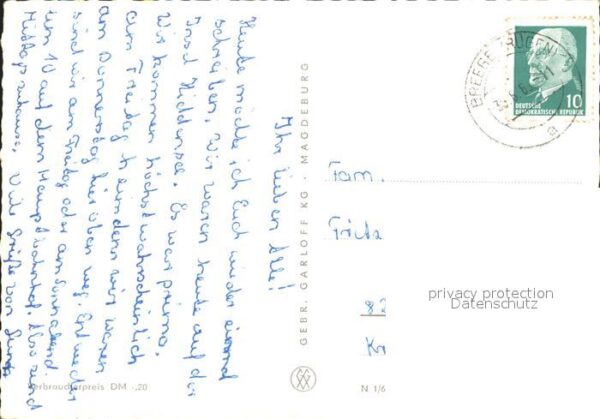 Ihr lieben Alle!
Heute möchte ich Euch wieder einmal
schreiben. Wir waren heute auf der
Insel Hiddensee. Es war prima.
Wir kommen höchstwahrscheinlich
am Freitag heim denn wir waren
am Donnerstag hier über weg. Entweder
sind wir am Freitag oder am Sonnabend
um 10 auf dem Hauptbahnhof. Also sind
Mittags zuhause. Viele Grüße von
GEBR. GARLOFF KG · MAGDEBURG
Verbraucherpreis DM -,20
BREEGE (RÜGEN)
a
10
DEUTSCHE
DEMOKRATISCHE REPUBLIK
Fam.
Fritz
82
privacy protection
Datenschutz
N 1/6